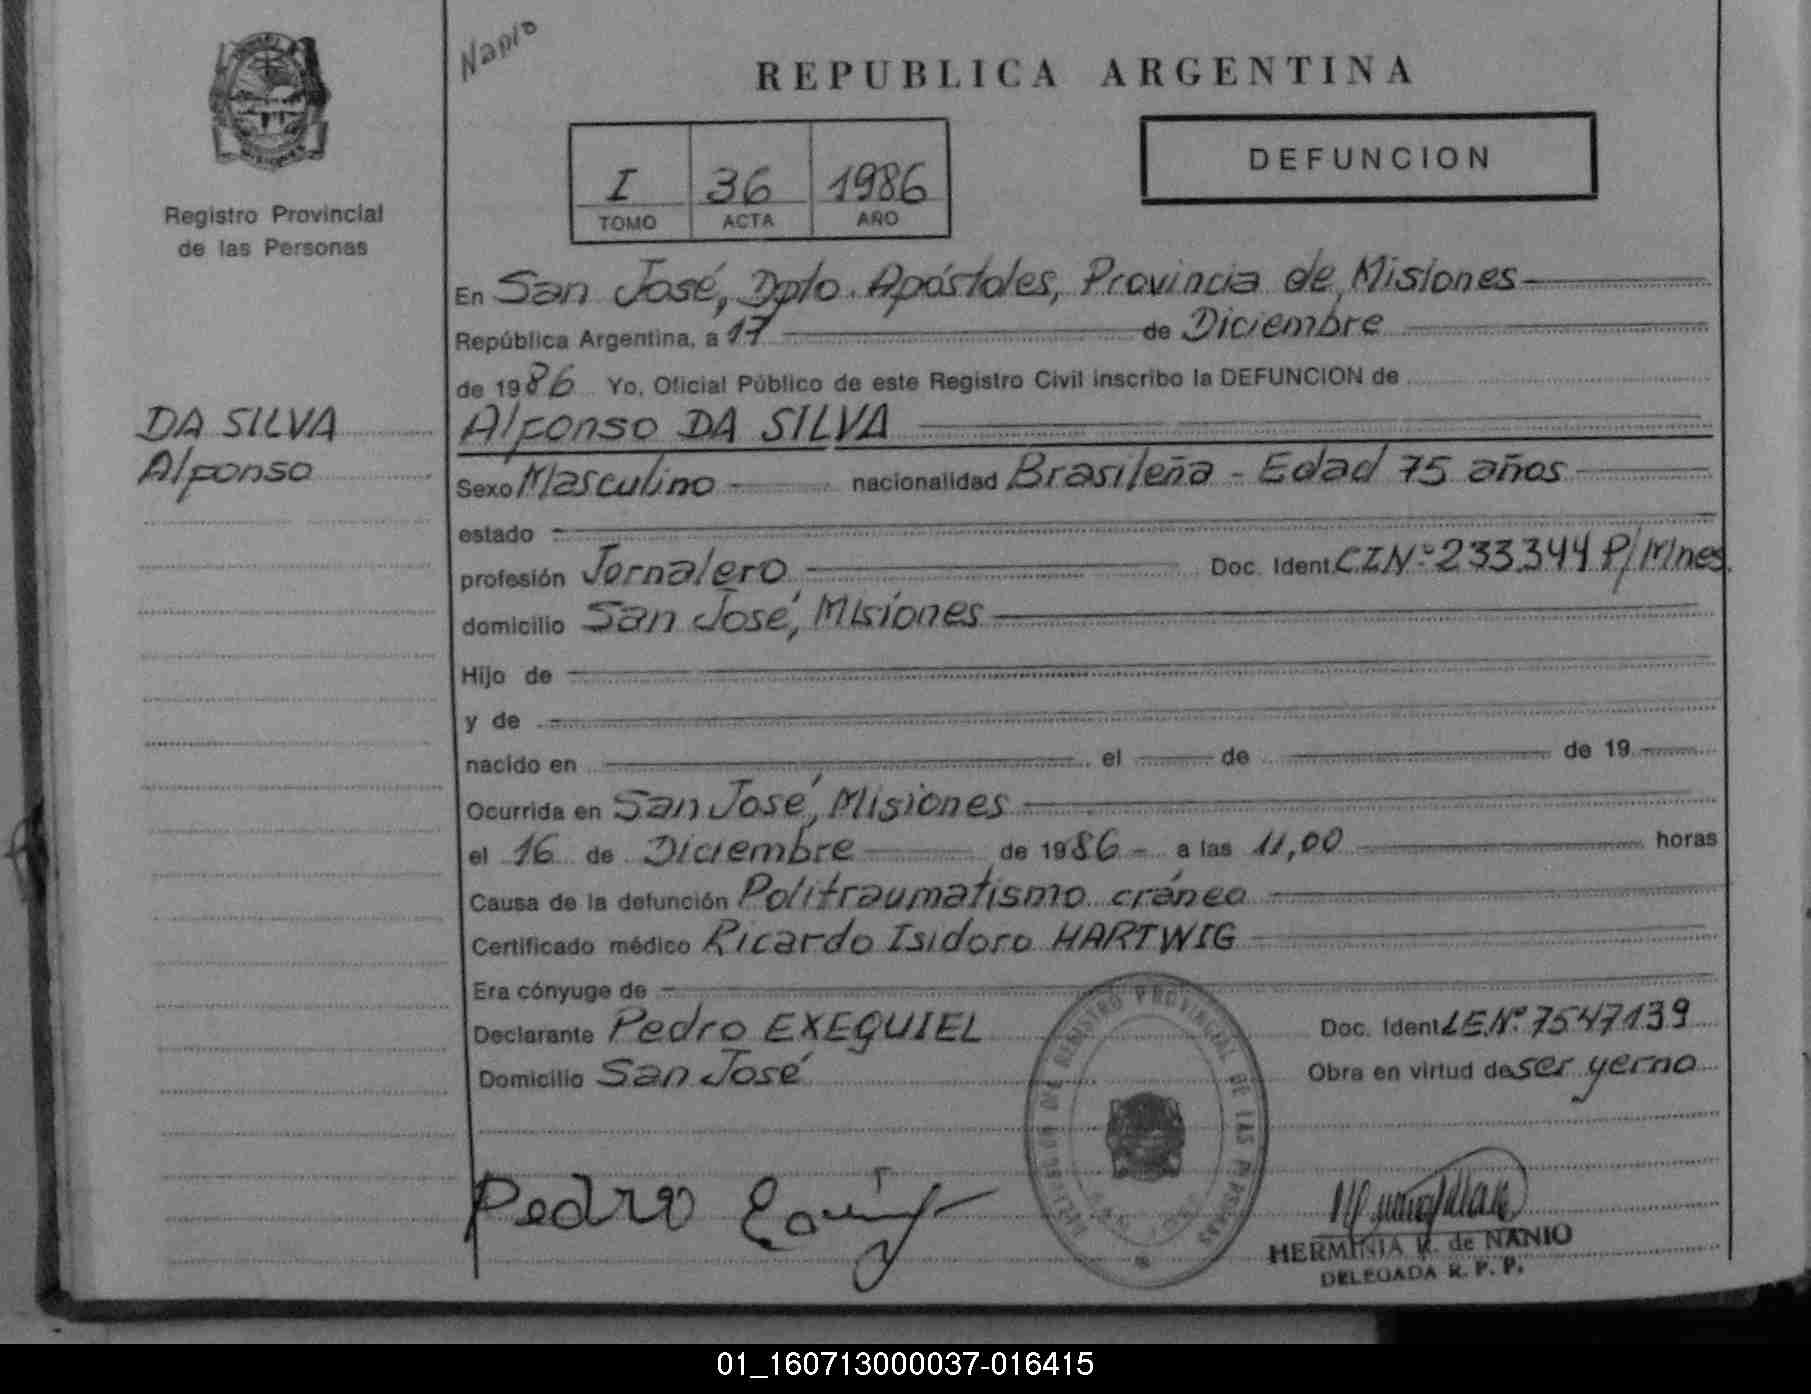 Nanio
REPUBLICA ARGENTINA
DEFUNCION
I 36 1986
TOMO ACTA AÑO
MISIONES
Registro Provincial
de las Personas
En San José, Dpto. Apóstoles, Provincia de Misiones
República Argentina, a 17 de Diciembre
de 1986 Yo, Oficial Público de este Registro Civil inscribo la DEFUNCION de
DA SILVA
Alfonso
Alfonso DA SILVA
Sexo Masculino nacionalidad Brasileña - Edad 75 años
estado
profesión Jornalero Doc. Ident. C.I.Nº 233.344 P/Mnes.
domicilio San José, Misiones
Hijo de
y de
nacido en el de de 19
Ocurrida en San José, Misiones
el 16 de Diciembre de 1986 - a las 11,00 horas
Causa de la defunción Politraumatismo cráneo
Certificado médico Ricardo Isidoro HARTWIG
Era cónyuge de
Declarante Pedro EXEQUIEL Doc. Ident. L.E.Nº 7547139
Domicilio San José Obra en virtud de ser yerno
DELEGACION DEL REGISTRO PROVINCIAL DE LAS PERSONAS
Pedro
HERMINIA K. de NANIO
DELEGADA R. P. P.
01_160713000037-016415